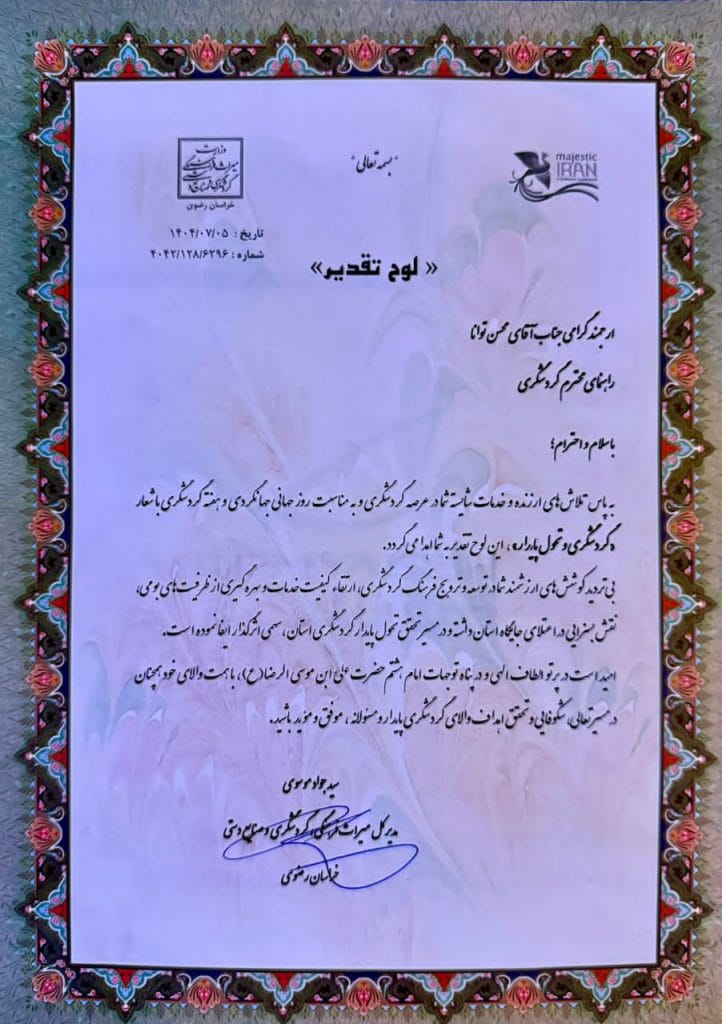 "بسمه تعالی"
majestic
IRAN
وزارت
میراث فرهنگی
گردشگری و صنایع دستی
خراسان رضوی
تاریخ : ۱۴۰۴/۰۷/۰۵
شماره : ۴۰۴۲/۱۲۸/۶۲۹۶
« لوح تقدیر»
ارجمند گرامی جناب آقای محسن توانا
راهنمای محترم گردشگری
با سلام و احترام؛
به پاس تلاش های ارزنده و خدمات شایسته شما در عرصه گردشگری و به مناسبت روز جهانی جهانگردی و هفته گردشگری با شعار
«گردشگری و تحول پایدار»، این لوح تقدیر به شما اهدا می گردد.
بی تردید کوشش های ارزشمند شما در توسعه و ترویج فرهنگ گردشگری، ارتقاء کیفیت خدمات و بهره گیری از ظرفیت های بومی،
نقش بسزایی در اعتلای جایگاه استان داشته و در مسیر تحقق تحول پایدار گردشگری استان، سهمی اثرگذار ایفا نموده است.
امید است در پرتو الطاف الهی و در پناه توجهات امام هشتم حضرت علی ابن موسی الرضا(ع)، با همت والای خود همچنان
در مسیر تعالی، شکوفایی و تحقق اهداف والای گردشگری پایدار و مسئولانه، موفق و مؤید باشید.
سید جواد موسوی
مدیر کل میراث فرهنگی، گردشگری و صنایع دستی
خراسان رضوی